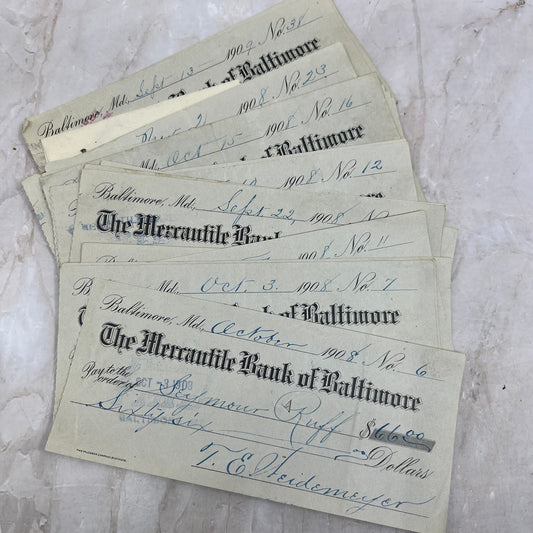 Baltimore, Md., Sept 13 1909 No. 38
Bank of Baltimore
1908 No. 23
Md., Oct 15 1908 No. 16
Bank of Baltimore
1908 No. 12
Baltimore, Md., Sept. 22, 1908 No.
The Mercantile Bank
1908 No. 11
Oct 3. 1908 No. 7
Bank of Baltimore
Baltimore, Md., October 1908 No. 6
The Mercantile Bank of Baltimore
OCT -9 1908
Pay to the
order of Seymour Ruff $66.00
Sixty six Dollars
T. E. Heidemeyer